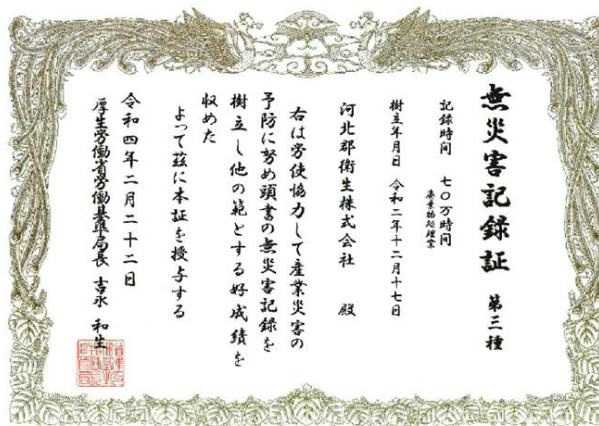 無災害記録証 第三種
記録時間 七〇万時間
廃棄物処理業
樹立年月日 令和二年十二月十七日
河北郡衛生株式会社 殿
右は労使協力して産業災害の
予防に努め頭書の無災害記録を
樹立し他の範とする好成績を
収めた
よって茲に本証を授与する
令和四年二月二十二日
厚生労働省労働基準局長 吉永 和生